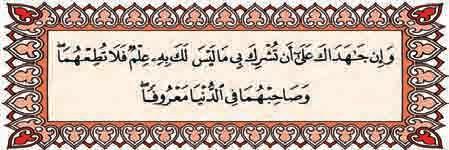 وَإِن جَـٰهَدَاكَ عَلَىٰٓ أَن تُشْرِكَ بِى مَا لَيْسَ لَكَ بِهِۦ عِلْمٌۭ فَلَا تُطِعْهُمَا ۖ
وَصَاحِبْهُمَا فِى ٱلدُّنْيَا مَعْرُوفًۭا ۖ